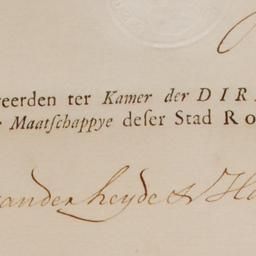 eerden ter Kamer der DIR
Maatſchappye deſer Stad Ro
vanderheyde & Ho